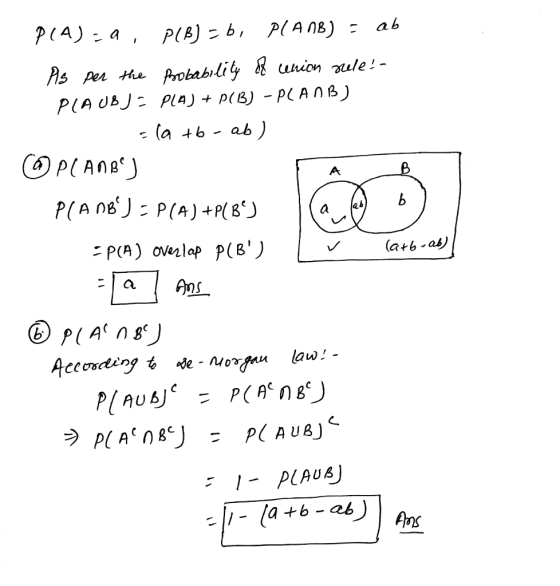 P(A) = a, P(B) = b, P(A∩B) = ab
As per the Probability of union rule:-
P(A∪B) = P(A) + P(B) - P(A∩B)
= (a + b - ab)
(a) P(A∩Bᶜ)
P(A∩Bᶜ) = P(A) + P(Bᶜ)
= P(A) overlap P(B')
= a Ans
A B
a ab b
(a+b-ab)
(b) P(Aᶜ∩Bᶜ)
According to de-Morgan law:-
P(A∪B)ᶜ = P(Aᶜ∩Bᶜ)
⇒ P(Aᶜ∩Bᶜ) = P(A∪B)ᶜ
= 1 - P(A∪B)
= 1 - (a + b - ab) Ans